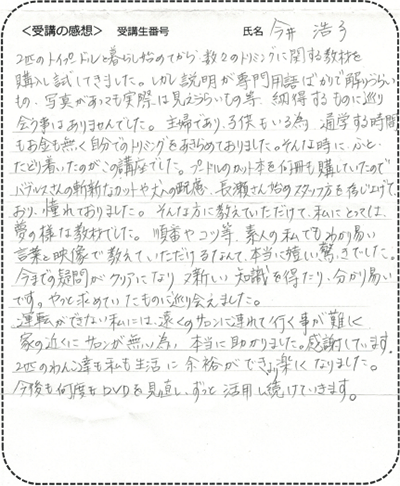 ＜受講の感想＞ 受講生番号 氏名 今井 浩子
2匹のトイプードルと暮らし始めてから、数々のトリミングに関する教材を
購入し試してきました。しかし説明が専門用語ばかりで解りづらい
もの、写真があっても実際は見えづらいもの等、納得するものに巡り
会う事はありませんでした。主婦であり、子供もいる為、通学する時間
もお金も無く自分でのトリミングをあきらめておりました。そんな時に、ふと、
たどり着いたのがこの講座でした。プードルのカット本を何冊も購入していたので
バウムスさんの斬新なカットや犬への配慮、長瀬さん始めスタッフ方を存じ上げて
おり、憧れておりました。そんな方に教えていただけて、私にとっては、
夢の様な教材でした。順番やコツ等、素人の私でもわかり易い
言葉と映像で教えていただけるなんて、本当に嬉しい驚きでした。
今までの疑問がクリアになり又新しい知識を得たり、分かり易い
です。やっと求めていたものに巡り会えました。
運転ができない私には、遠くのサロンに連れて行く事が難しく
家の近くにサロンが無い為、本当に助かりました。感謝しています。
2匹のわんこ達も私も生活に余裕ができ楽しくなりました。
今後も何度もDVDを見直し、ずっと活用し続けていきます。